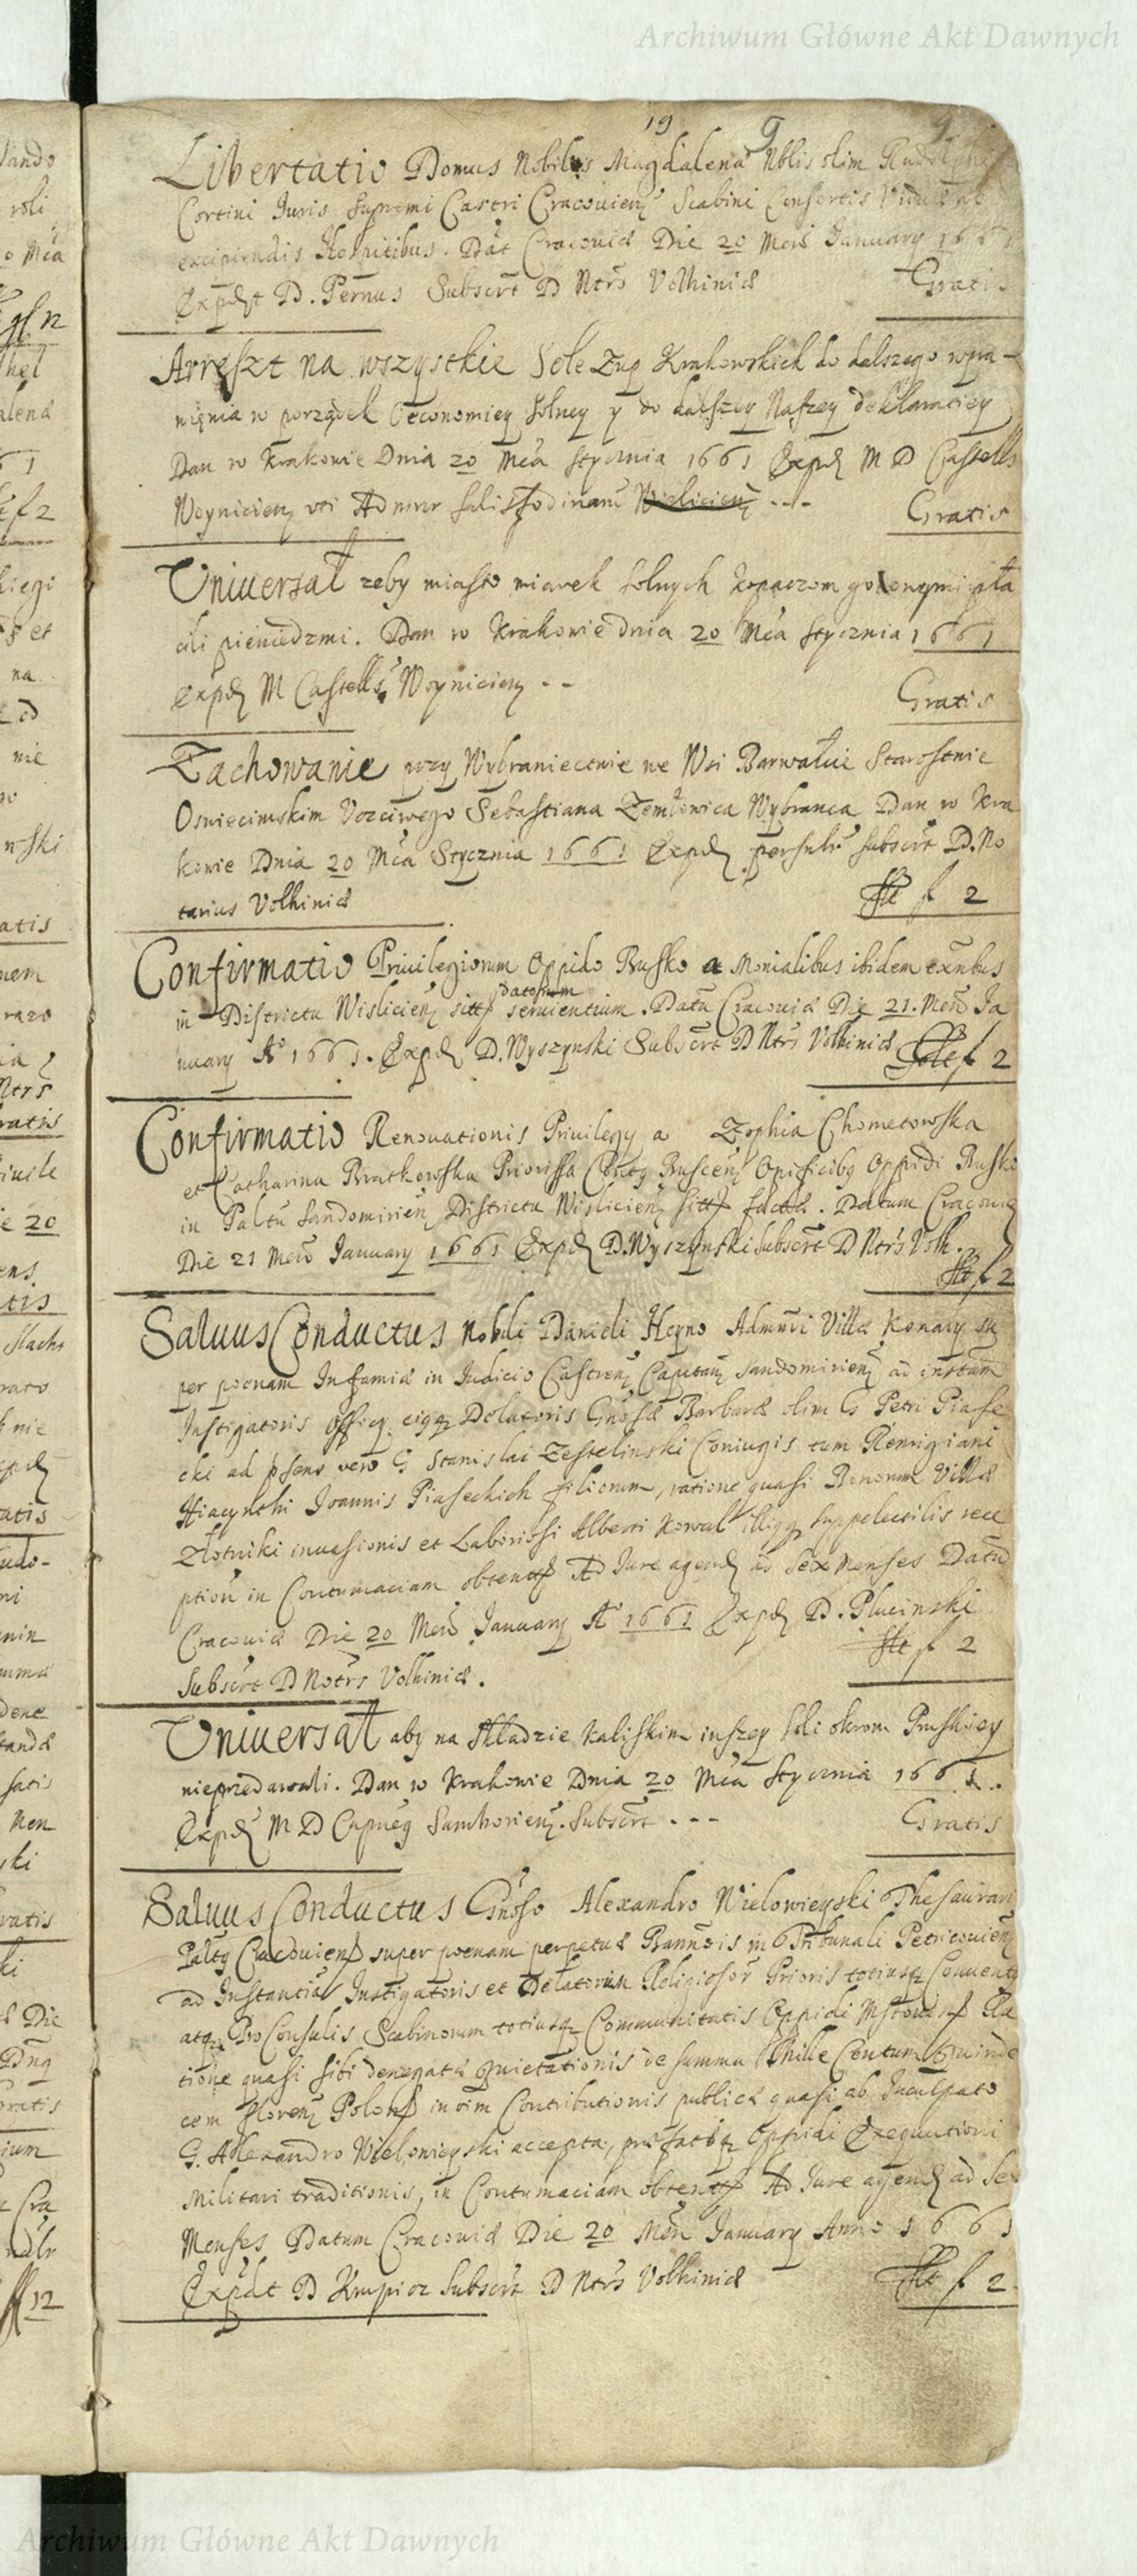 Archiwum Główne Akt Dawnych
19 9
Libertatio Domus Nobilis Magdalena Nblis olim Rudolphi
Cortini Juris Supremi Castri Cracouien Scabini Consortis Viduae ab
excipiendis Hospitibus. Dat Cracouiae Die 20 Mens January 1661
Expdt D. Pernus Subscrt D Ntrs Volhiniae Gratis
Arreszt na wszystkie Sole Zup Krakowskich do dalszego wpra-
wienia w porządek Oeconomiey Solney y do dalszey Naszey deklaraciey
Dan w Krakowie Dnia 20 Mca Stycznia 1661 Exped M D Castells
Woynicien uti Admnr salisfodinaru Wielicien --- Gratis
Uniuersał zeby miasto miarek solnych kopaczom gotonymi pła
cili pieniedzmi. Dan w Krakowie dnia 20 Mca Stycznia 1661
Exped M Castells Woynicien -- Gratis
Zachowanie przy Wybraniectwie we Wsi Barwałcie Starostwie
Oswiecimskim Vczciwego Sebastiana Zemłowica Wybranca Dan w Kra
kowie Dnia 20 Mca Stycznia 1661 Exped persulr Subscrt D. No
tarius Volhiniae f 2
Confirmatio Priuilegiorum Oppido Busko a Monialibus ibidem exnbus
datorum
in Districtu Wislicien sitt seruientium. Datu Cracouiae Die 21. Mens Ja
nuary Ao 1661. Exped D. Wyszynski Subscrt D Ntrs Volhiniae f 2
Confirmatio Renouationis Priuilegy a Zophia Chometowska
et Catharina Bratkowska Priorissa Contg Buscen Opificibg Oppidi Buski
in Paltu Sandomirien Districtu Wislicien sitt factae. Datum Cracouiae
Die 21 Mens January 1661 Exped D. Wyszynski Subscrt D Ntrs Volh. f 2
Saluus Conductus Nobili Danieli Heyno Admnri Villae Konary su
per poenam Infamiae in Judicio Castren Capitan Sandomirien ad instam
Instigatoris Officy eigq Delatoris Gnosae Barbarae olim G Petri Piase
cki ad psens vero G Stanislai Zestelinski Coniugis tum Remigiani
Hiacynthi Joannis Piaseckich filiorum, ratione quasi Bonorum Villae
Złotniki inuasionis et Laboriosi Alberti Kowal illigq suppelectilis rece
ption in Contumaciam obtent Ad Jure agend ad Sex Menses Datu
Cracouiae Die 20 Mens January Ao 1661 Exped D. Plucinski
Subscrt D Notrs Volhiniae. f 2
Uniuersał aby na Składzie Kaliskim inszey soli okrom Pruskiey
nieprzedawali. Dan w Krakowie Dnia 20 Mca Stycznia 1661.
Exped M D Capneg Samborien. Subscrt --- Gratis
Saluus Conductus Gnoso Alexandro Wielowieyski Thesaurari
Paltg Cracouien super poenam perpetuae Bannois in Tribunali Petricouien
ad Instantia Instigatoris et Delatorum Religiosor Prioris totiusq Conuentg
atq ProConsulis Scabinorum totiusq Communitatis Oppidi Mstow Ra
tione quasi sibi denegatae Quietationis de summa Mille Centum Quinde
cem Floren Polon in vim Contributionis publicae quasi ab Inculpato
G. Alexandro Wielowieyski accepta, praefatisq Oppidi Exequutioni
Militari traditionis, in Contumaciam obtent Ad Jure agend ad Sex
Menses Datum Cracouiae Die 20 Mens January Anno 1661
Expdt D Krupior Subscrt D Ntrs Volhiniae f 2
Archiwum Główne Akt Dawnych